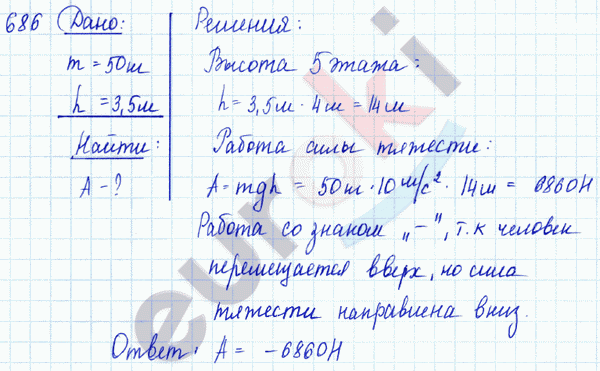 686 Дано:
m = 50т
h = 3,5м
Найти:
А - ?
Решения:
Высота 5 этажа:
h = 3,5м · 4м = 14м
Работа силы тяжести:
А = mgh = 50т · 10 м/с² · 14м = 6860Н
Работа со знаком „−”, т.к человек
перемещается вверх, но сила
тяжести направлена вниз.
Ответ: А = −6860Н
euroki